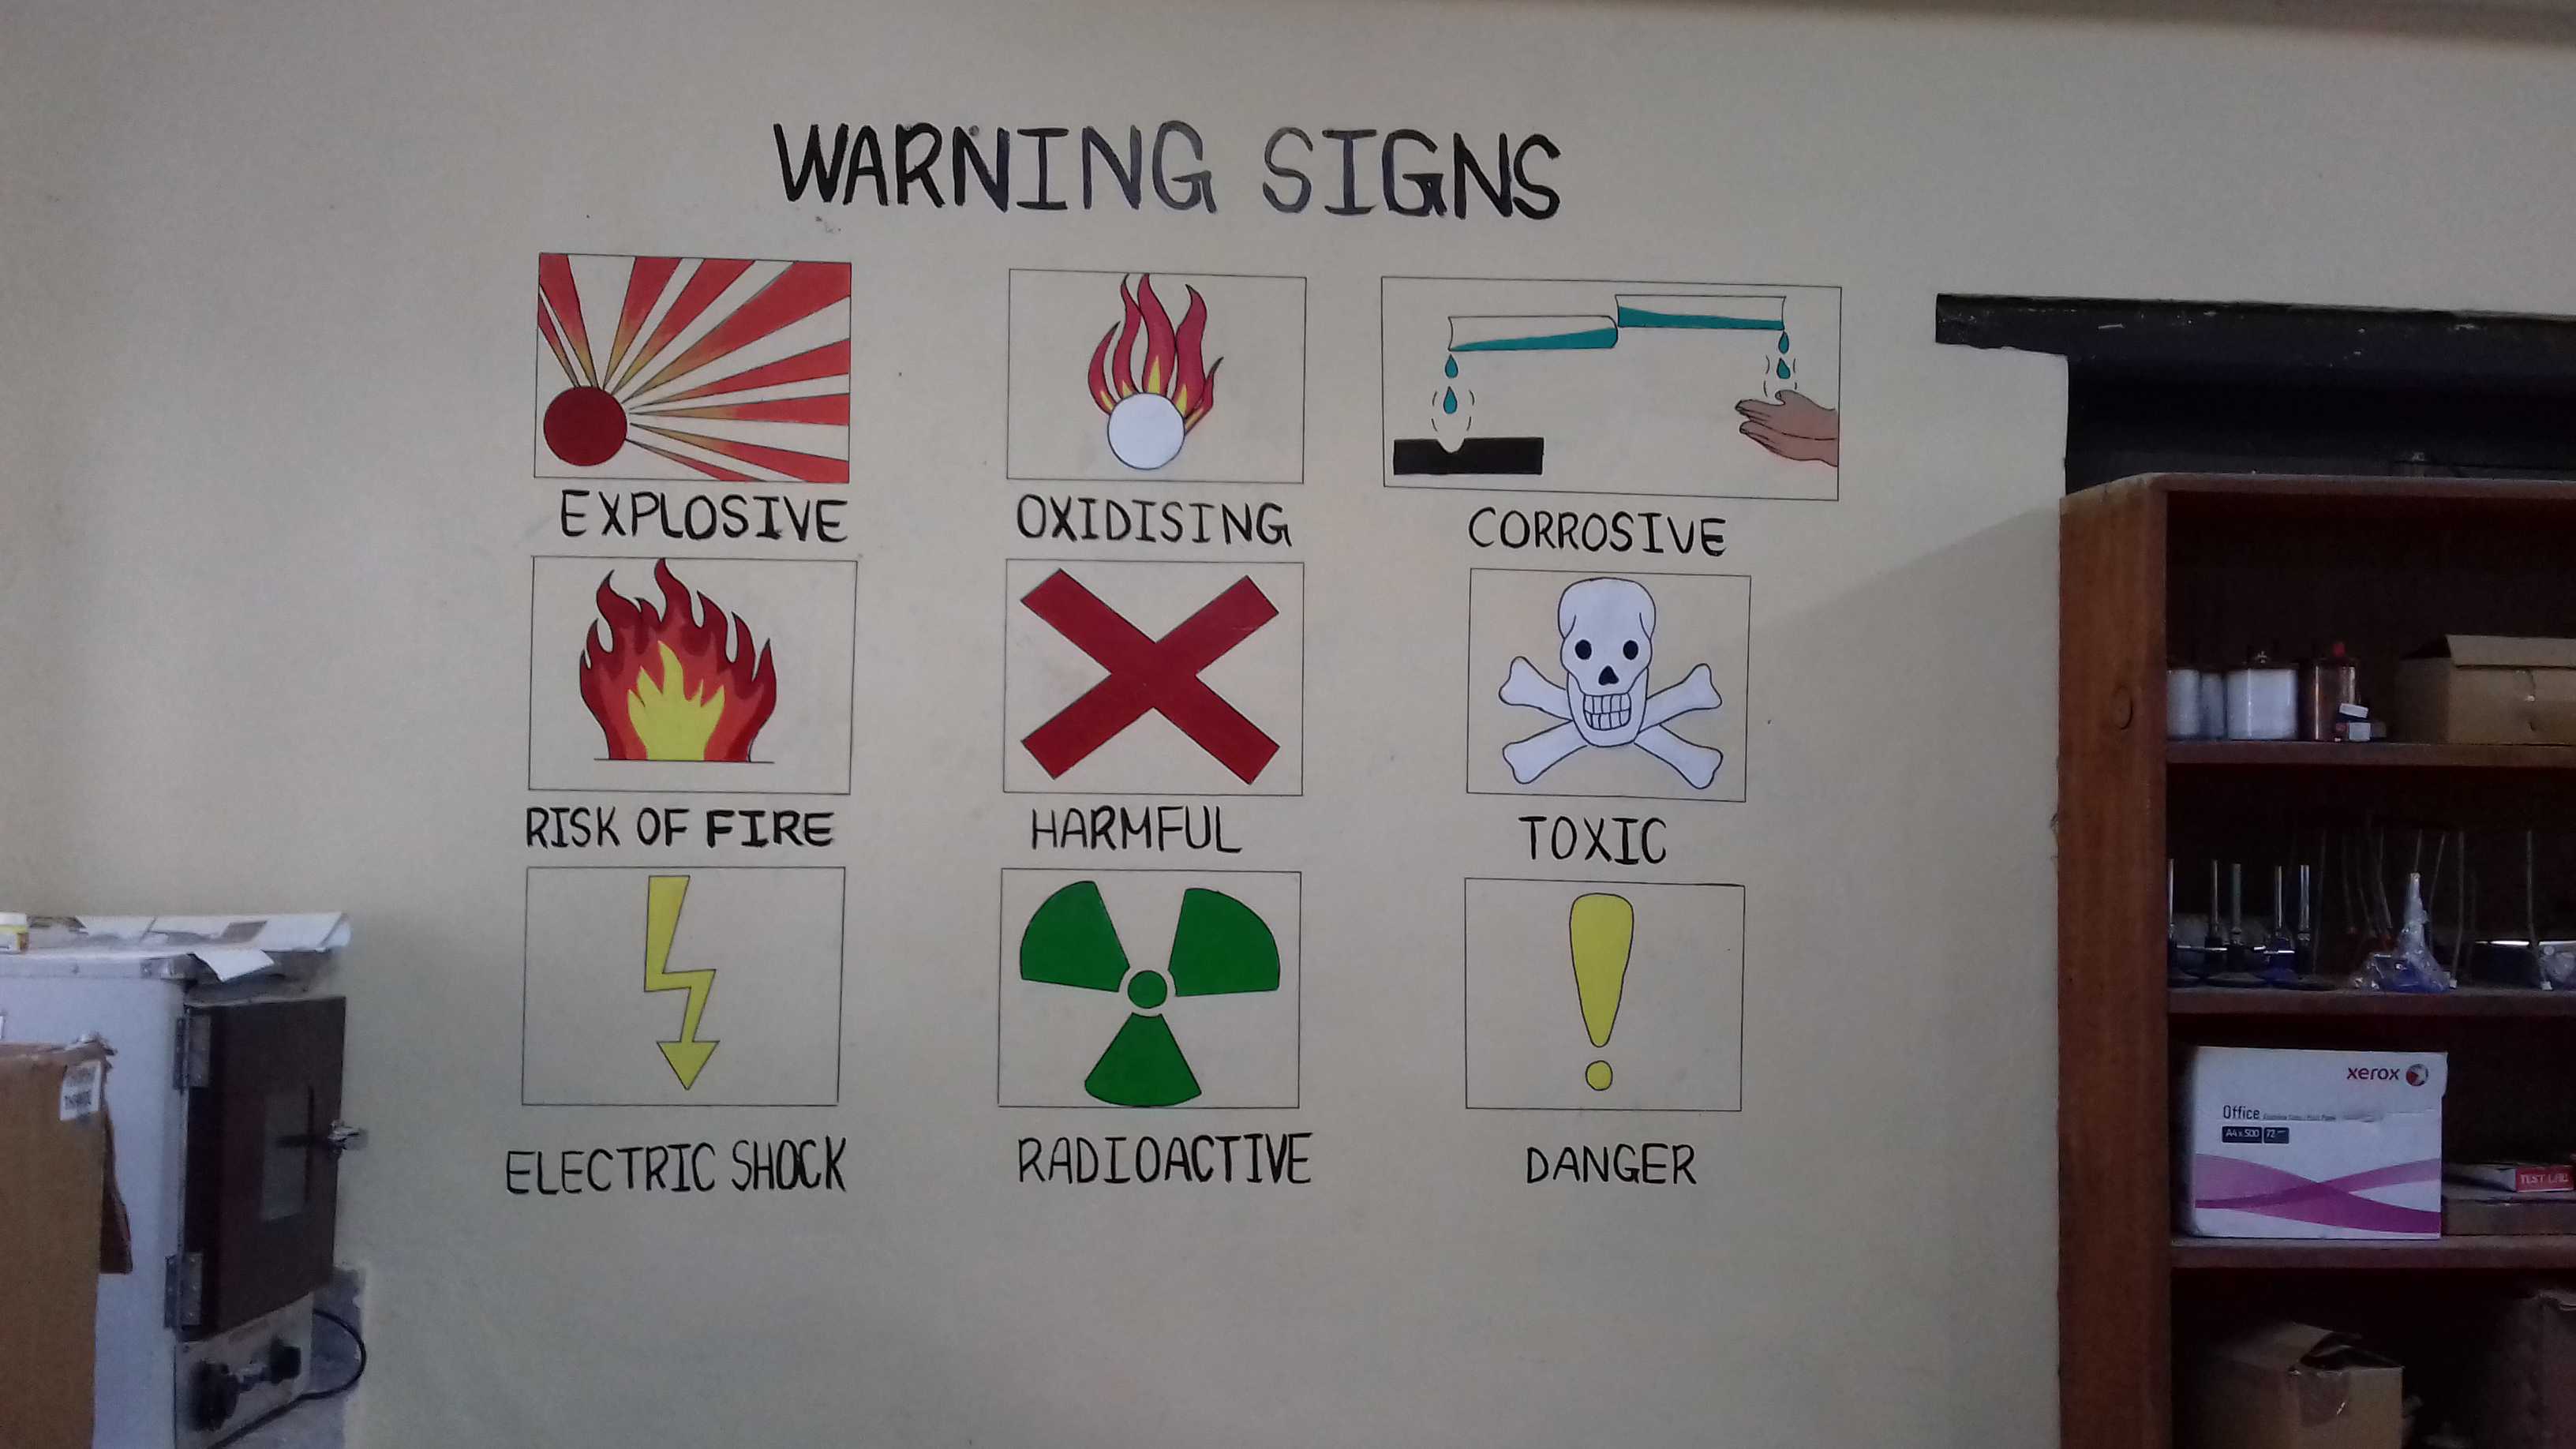 WARNING SIGNS
EXPLOSIVE
OXIDISING
CORROSIVE
RISK OF FIRE
HARMFUL
TOXIC
ELECTRIC SHOCK
RADIOACTIVE
DANGER
xerox
Office
A4 x 500
TEST